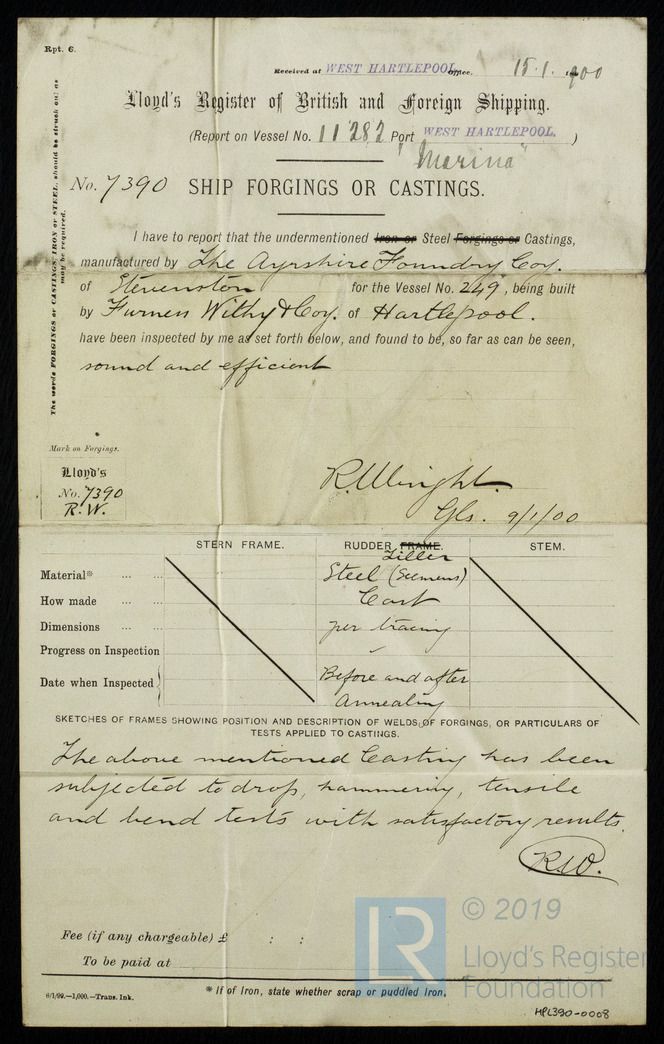 Rpt. 6.
Received at WEST HARTLEPOOL Office, 15.1.1900
Lloyd's Register of British and Foreign Shipping.
(Report on Vessel No. 11282 Port WEST HARTLEPOOL. )
"Marina"
No. 7390 SHIP FORGINGS OR CASTINGS.
The words FORGINGS or CASTINGS, IRON or STEEL, should be struck out as may be required.
I have to report that the undermentioned Iron or Steel Forgings or Castings,
manufactured by The Ayrshire Foundry Coy.
of Stevenston for the Vessel No. 249, being built
by Furness Withy & Coy. of Hartlepool.
have been inspected by me as set forth below, and found to be, so far as can be seen,
sound and efficient
Mark on Forgings.
Lloyd's
No. 7390
R.W.
R. Wright.
Gls. 9/1/00
STERN FRAME. RUDDER FRAME. STEM.
Tiller
Material* ... ... Steel (Siemens)
How made ... ... Cast
Dimensions ... ... per tracing
Progress on Inspection
Date when Inspected Before and after
Annealing
SKETCHES OF FRAMES SHOWING POSITION AND DESCRIPTION OF WELDS OF FORGINGS, OR PARTICULARS OF
TESTS APPLIED TO CASTINGS.
The above mentioned Casting has been
subjected to drop, hammering, tensile
and bend tests with satisfactory results.
R.W.
Fee (if any chargeable) £ : :
To be paid at
* If of Iron, state whether scrap or puddled Iron.
6/1/99.—1,000.—Trans. Ink.
LR
© 2019
Lloyd's Register
Foundation
HPL390-0008